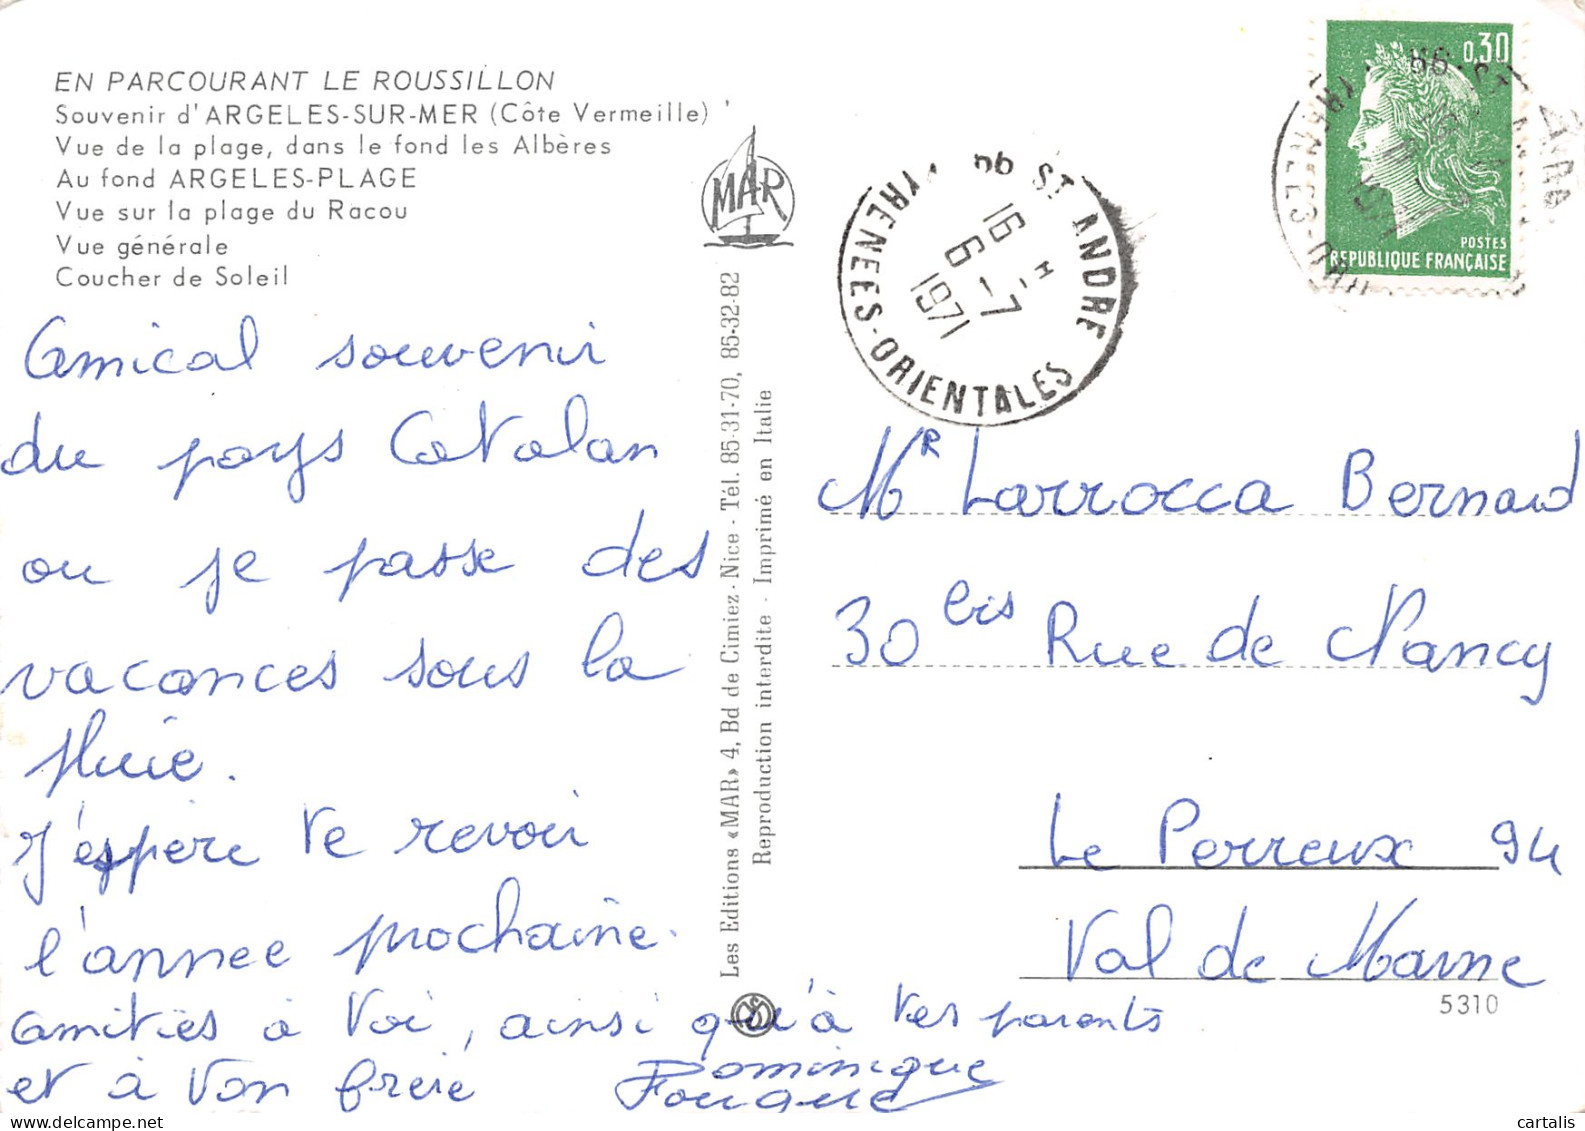 EN PARCOURANT LE ROUSSILLON
Souvenir d'ARGELES-SUR-MER (Côte Vermeille)
Vue de la plage, dans le fond les Albères
Au fond ARGELES-PLAGE
Vue sur la plage du Racou
Vue générale
Coucher de Soleil
MAR
66 ST ANDRE
PYRENEES-ORIENTALES
16 H
6-7
1971
0,30
POSTES
REPUBLIQUE FRANÇAISE
Amical souvenir
du pays Catalan
ou je passe des
vacances sous la
pluie.
J'espère te revoir
l'année prochaine.
amitiés à toi, ainsi qu'à tes parents
et à ton frère Dominique
Fougue
Les Editions «MAR» 4, Bd de Cimiez - Nice - Tél. 85-31-70, 85-32-82
Reproduction interdite - Imprimé en Italie
Mr Larrocca Bernard
30 bis Rue de Nancy
Le Perreux 94
Val de Marne
5310
cartalis